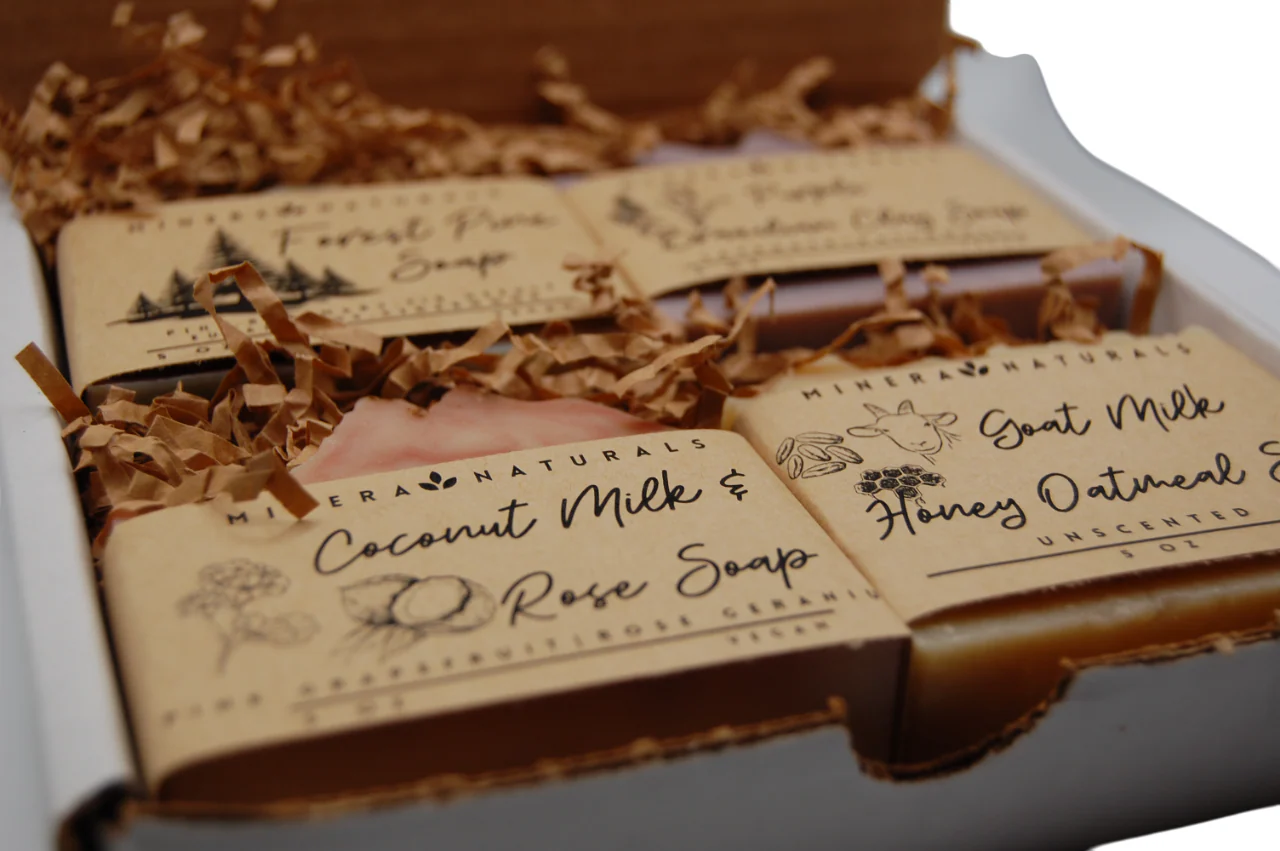 MINERA NATURALS
Forest Pine
Soap
5 OZ
Purple
Brazilian Clay Soap
MINERA NATURALS
Coconut Milk &
Rose Soap
PINK GRAPEFRUIT|ROSE GERANIU
VEGAN
5 OZ
MINERA NATURALS
Goat Milk
Honey Oatmeal S
UNSCENTED
5 OZ